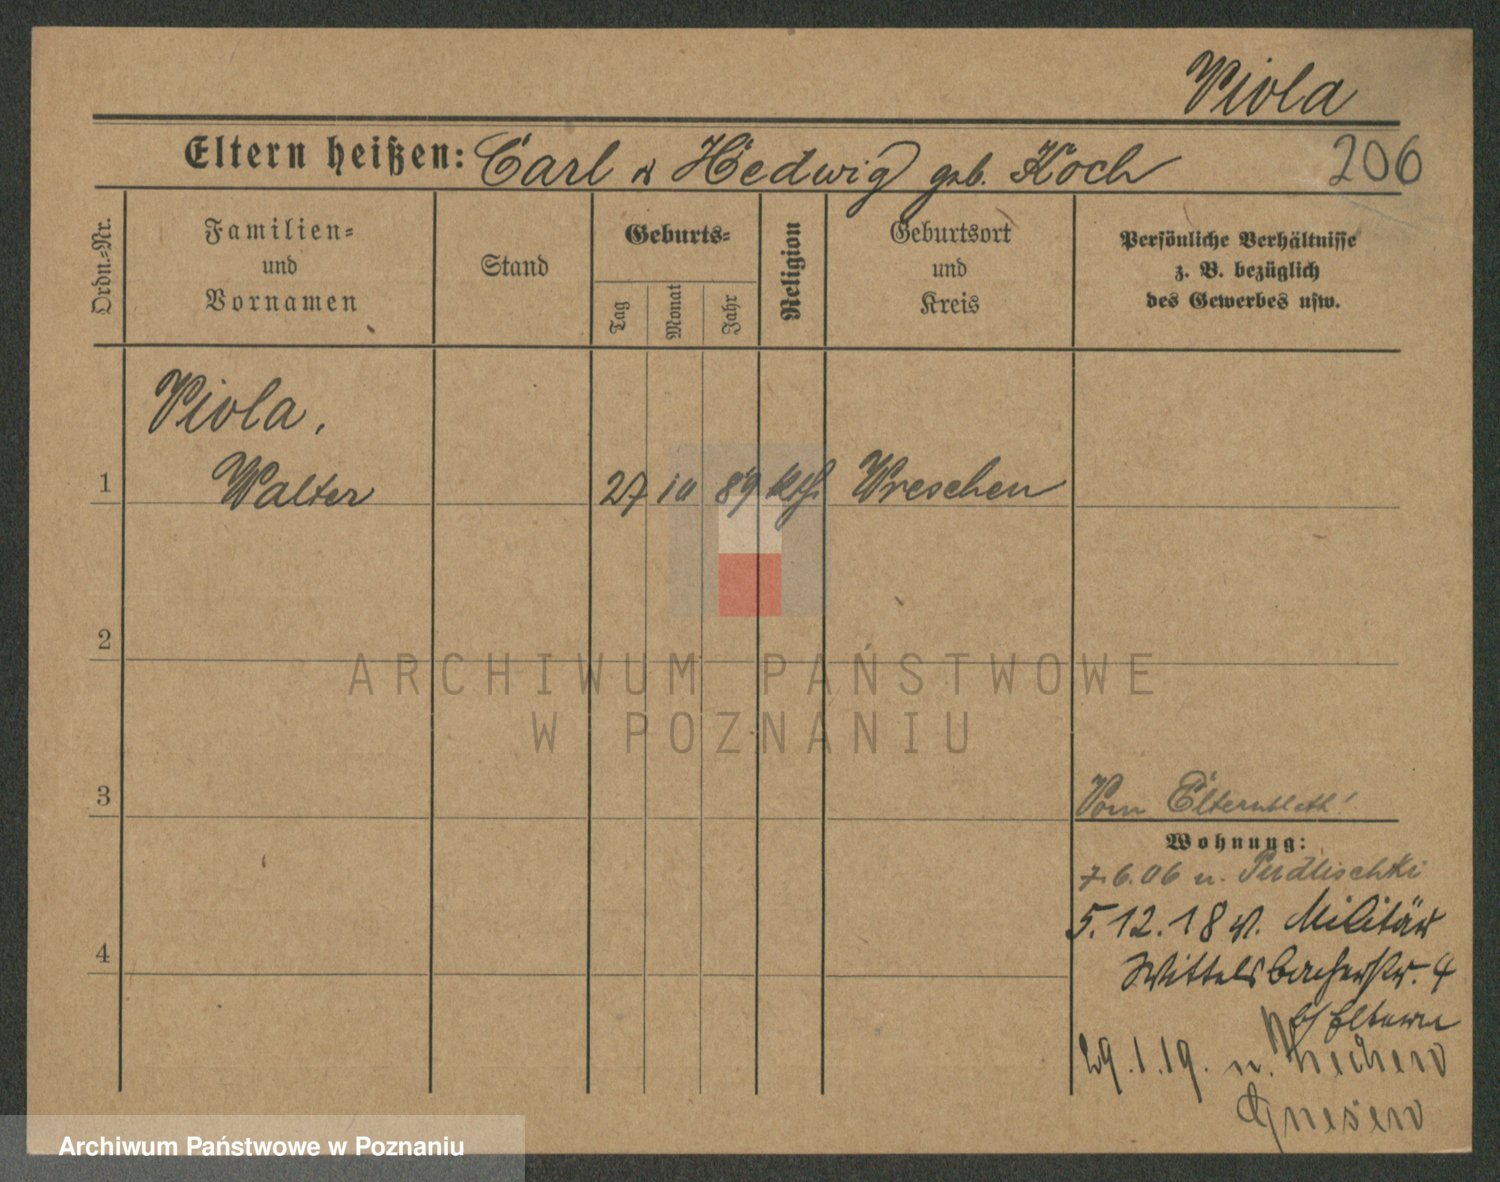 Viola
Eltern heißen: Carl u Hedwig geb. Koch
206
Ordn.-Nr.
Familien-
und
Vornamen
Stand
Geburts-
Tag
Monat
Jahr
Religion
Geburtsort
und
Kreis
Persönliche Verhältnisse
z. B. bezüglich
des Gewerbes usw.
Viola,
1 Walter 27 10 89 kth Wreschen
2
ARCHIWUM PAŃSTWOWE
W POZNANIU
3
Vom Elternblatt!
Wohnung:
7.6.06 n. Pudlischki
5.12.18 v. Militär
4
Wittelsbacherstr. 4
b/ Eltern
29.1.19. n.
Gnesen
Archiwum Państwowe w Poznaniu